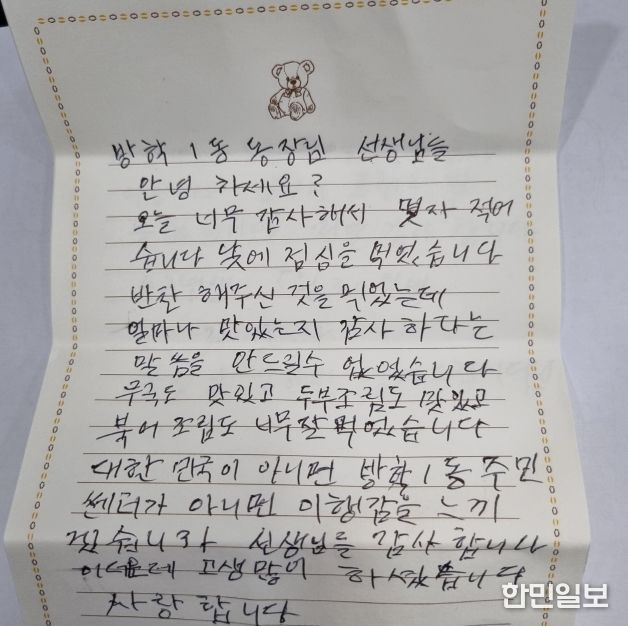 방학 1동 동장님 선생님들
안녕 하세요?
오늘 너무 감사해서 몇자 적어
습니다 낮에 점심을 먹었습니다
반찬 해주신 것을 먹었는데
얼마나 맛있는지 감사 하다는
말씀을 안드릴수 없었습니다
무국도 맛있고 두부조림도 맛있고
북어 조림도 너무잘 먹었습니다
대한 민국이 아니면 방학1동 주민
쎈터가 아니면 이행감을 느끼
선생님들 감사 합니다
고생많이 하셨습니다
사랑 합니다
한민일보